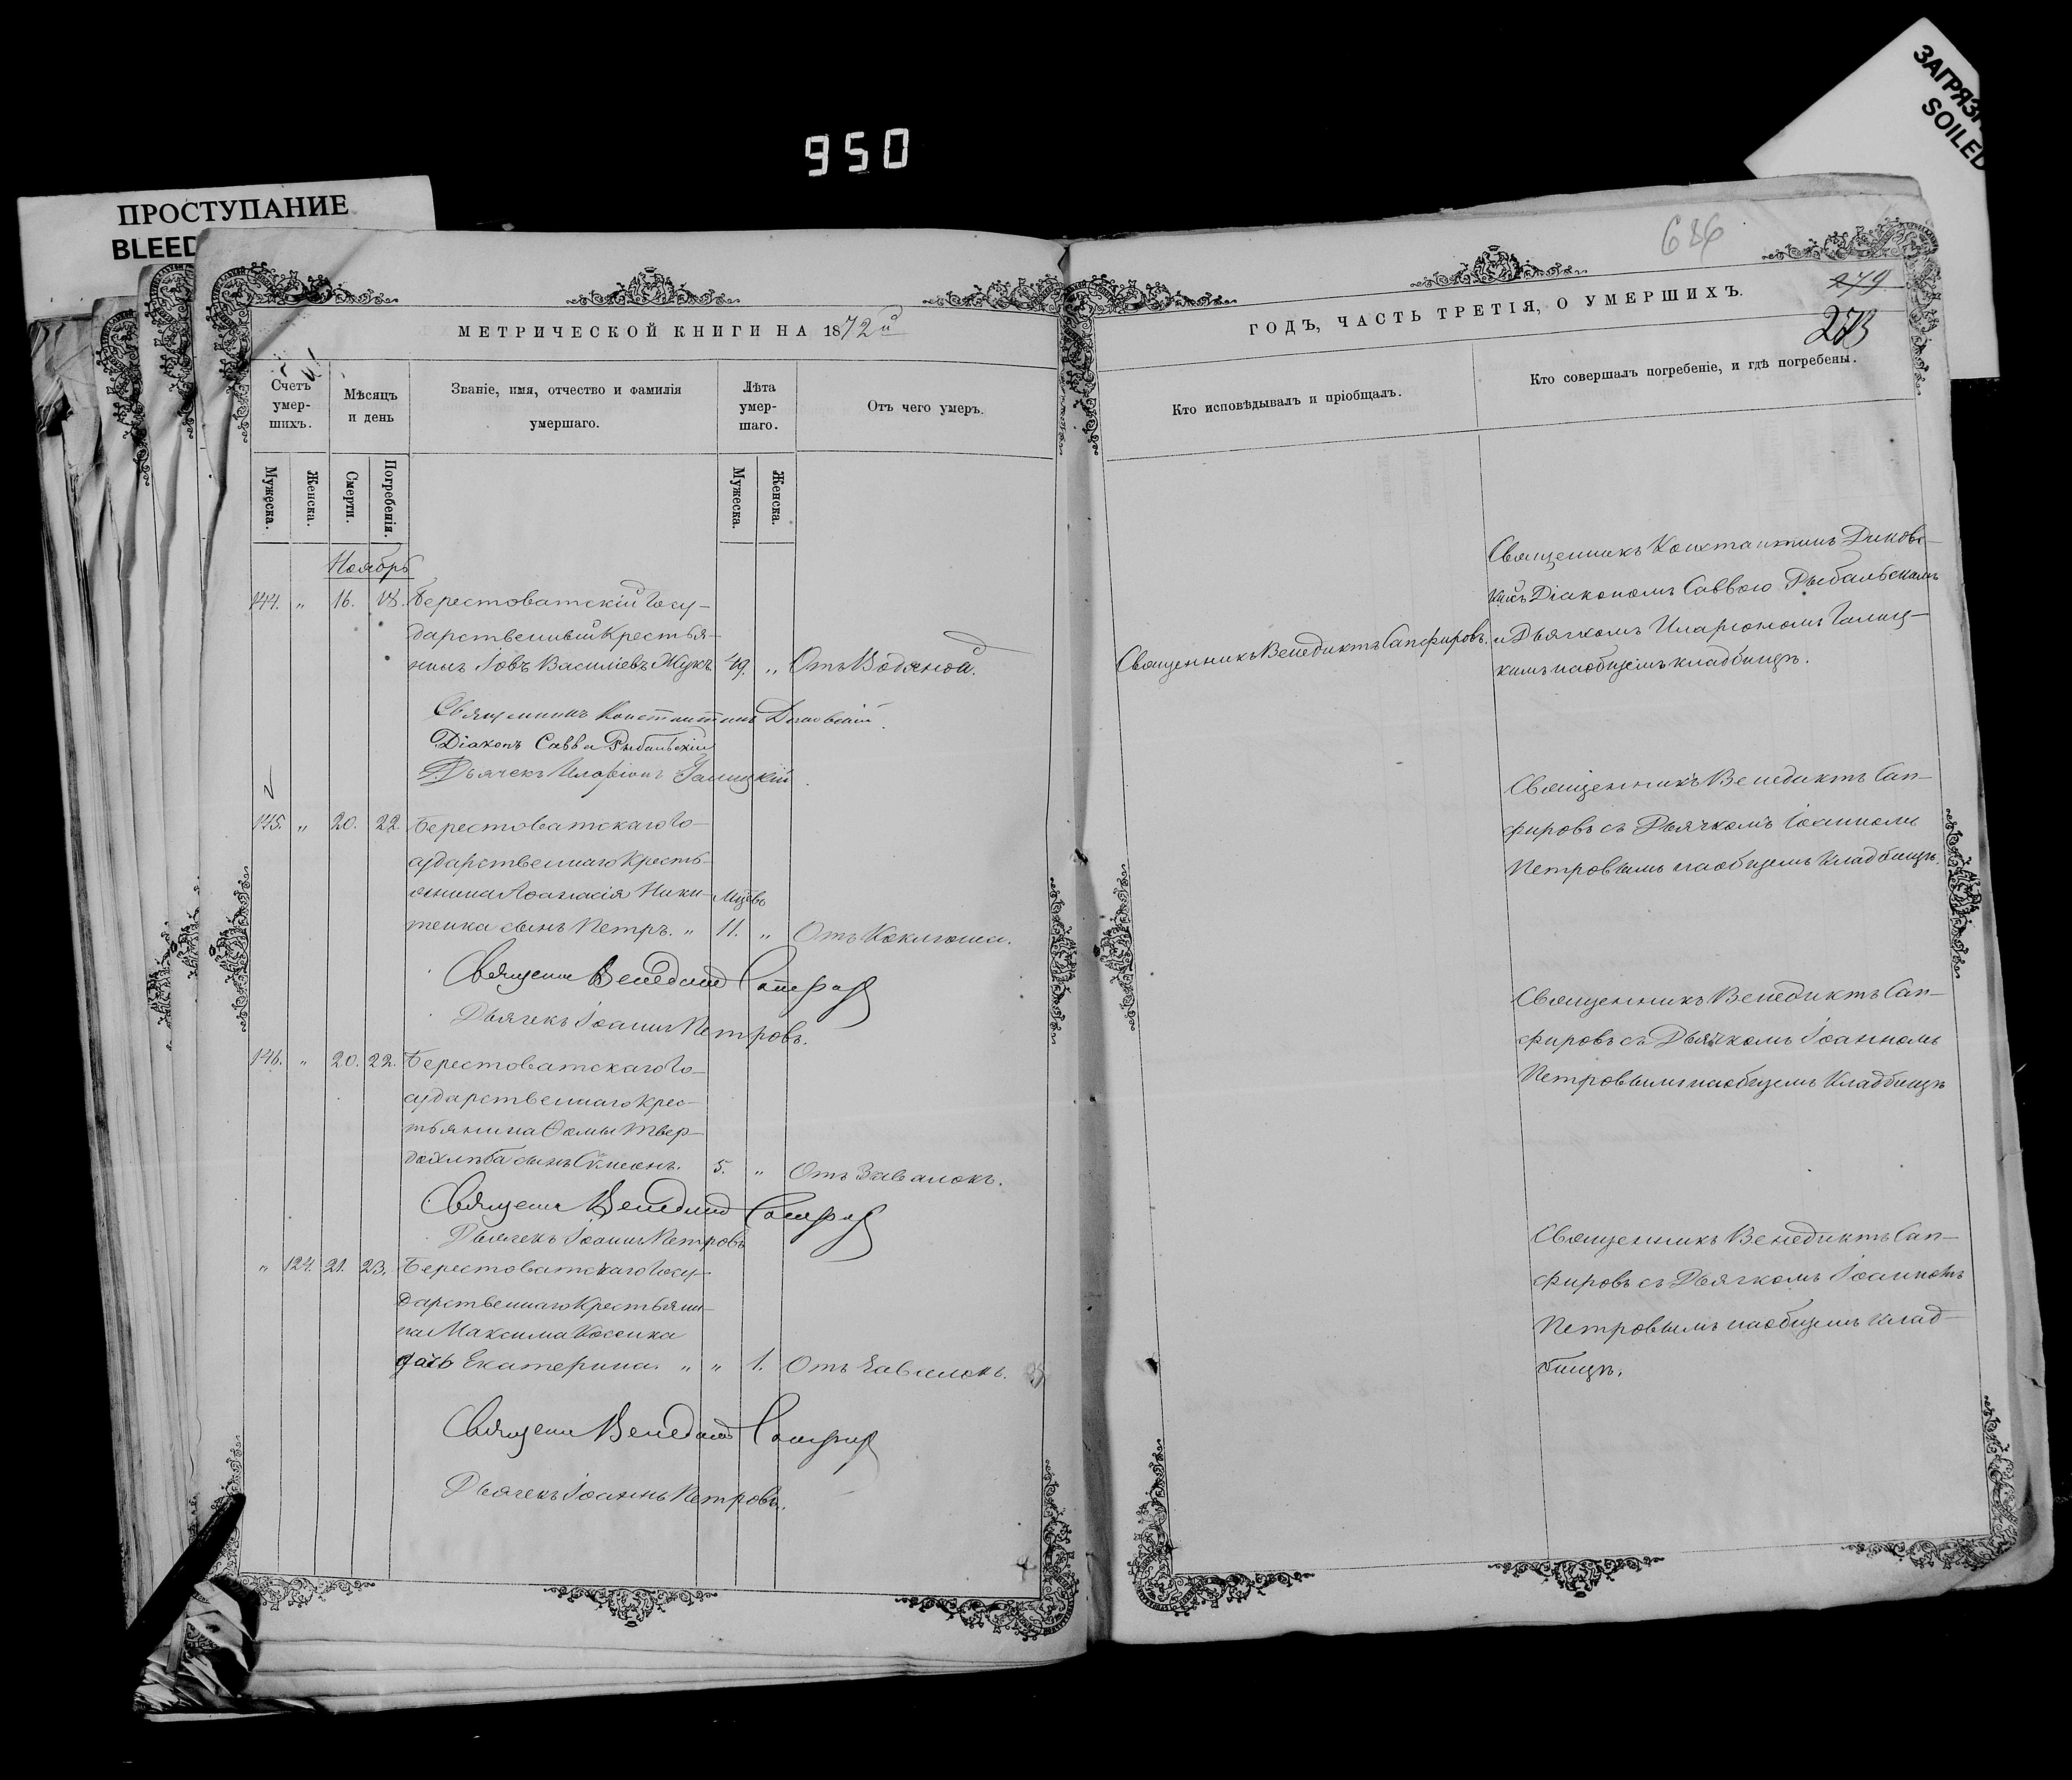 950
ПРОСТУПАНИЕ
BLEED
ЗАГРЯЗН
SOILED
686
279
273
МЕТРИЧЕСКОЙ КНИГИ НА 1872й
ГОДЪ, ЧАСТЬ ТРЕТІЯ, О УМЕРШИХЪ.
Счетъ умер-шихъ.
Мѣсяцъ и день
Званіе, имя, отчество и фамилія умершаго.
Лѣта умер-шаго.
Отъ чего умеръ.
Кто исповѣдывалъ и пріобщалъ.
Кто совершалъ погребеніе, и гдѣ погребены.
Мужеска. Женска. Смерти. Погребенія. Мужеска. Женска.
Ноябрь
144. „ 16. 18. Берестоватскій Госу-
дарственный Крестья-
нинъ Іовъ Василіевъ Жукъ. 49. „ Отъ Водяной.
Священникъ Венедиктъ Сапфировъ.
Священникъ Константинъ Диковс-
кій съ Діакономъ Саввою Рыбальскимъ
и Дьячкомъ Иларіономъ Галиц-
кимъ на общемъ кладбищѣ.
Священникъ Константинъ Диковскій.
Діаконъ Савва Рыбальскій
Дьячекъ Иларіонъ Галицкій.
145. „ 20. 22. Берестоватскаго Го-
сударственнаго Кресть-
янина Аѳанасія Ники- Мцевъ
тенка сынъ Петръ. „ 11. „ Отъ Коклюша.
Священникъ Венедиктъ Сап-
фировъ съ Дьячкомъ Іоанномъ
Петровымъ на общемъ Кладбищѣ.
Священ Венедикт Сапфиров
Дьячекъ Іоаннъ Петровъ.
146. „ 20. 22. Берестоватскаго Го-
сударственнаго Крес-
тьянина Ѳомы Твер-
дохлѣба сынъ Симеонъ. 5. „ Отъ Завалокъ.
Священникъ Венедиктъ Сап-
фировъ съ Дьячкомъ Іоанномъ
Петровымъ на общемъ Кладбищѣ
Священ Венедикт Сапфиров
Дьячекъ Іоаннъ Петровъ
„ 124. 21. 23. Берестоватскаго Госу-
дарственнаго Крестьяни-
на Максима Косенка
дочь Екатерина. „ „ 1. Отъ Завалокъ.
Священникъ Венедиктъ Сап-
фировъ съ Дьячкомъ Іоанномъ
Петровымъ на общемъ клад-
бищѣ.
Священ Венедикт Сапфиров
Дьячекъ Іоаннъ Петровъ.